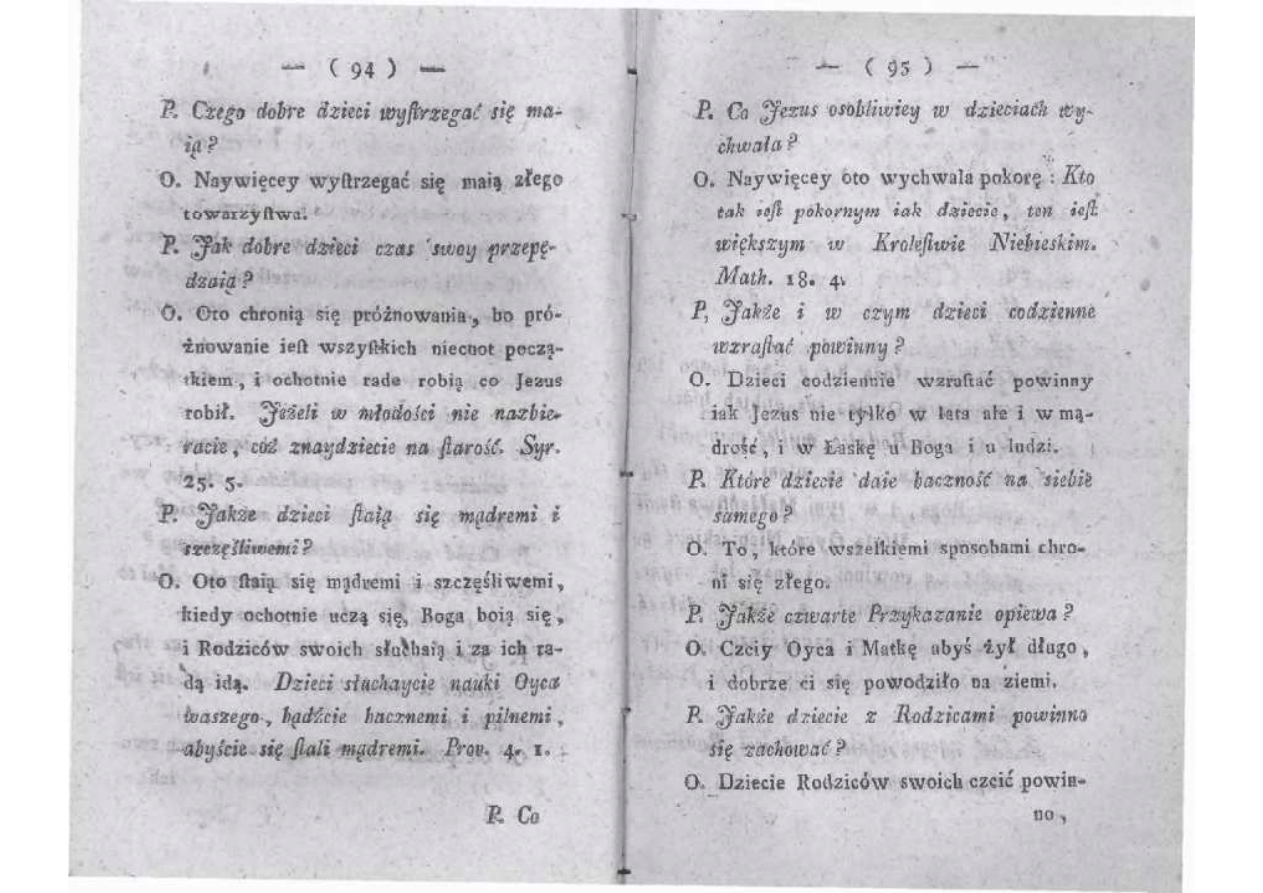 — ( 94 ) —
P. Czego dobre dzieci wystrzegać się ma-
ią?
O. Naywięcey wystrzegać się maią złego
towarzystwa.
P. Jak dobre dzieci czas swoy przepę-
dzaią?
O. Oto chronią się próżnowania, bo pró-
żnowanie iest wszystkich niecnot począ-
tkiem, i ochotnie rade robią co Jezus
robił. Jeżeli w młodości nie nazbie-
racie, cóż znaydziecie na starość. Syr.
25. 5.
P. Jakże dzieci staią się mądremi i
szczęśliwemi?
O. Oto staią się mądremi i szczęśliwemi,
kiedy ochotnie uczą się, Boga boią się,
i Rodziców swoich słuchaią i za ich ra-
dą idą. Dzieci słuchaycie nauki Oyca
waszego, bądźcie bacznemi i pilnemi,
abyście się stali mądremi. Prov. 4. 1.
P. Co
— ( 95 ) —
P. Co Jezus osobliwiey w dzieciach wy-
chwala?
O. Naywięcey oto wychwala pokorę: Kto
tak iest pokornym iak dziecie, ten iest
większym w Krolestwie Niebieskim.
Math. 18. 4.
P, Jakże i w czym dzieci codzienne
wzrastać powinny?
O. Dzieci codziennie wzrastać powinny
iak Jezus nie tylko w lata ale i w mą-
drość, i w Łaskę u Boga i u ludzi.
P. Które dziecie daie baczność na siebie
samego?
O. To, które wszelkiemi sposobami chro-
ni się złego.
P. Jakże czwarte Przykazanie opiewa?
O. Czciy Oyca i Matkę abyś żył długo,
i dobrze ci się powodziło na ziemi.
P. Jakże dziecie z Rodzicami powinno
się zachować?
O. Dziecie Rodziców swoich czcić powin-
no,